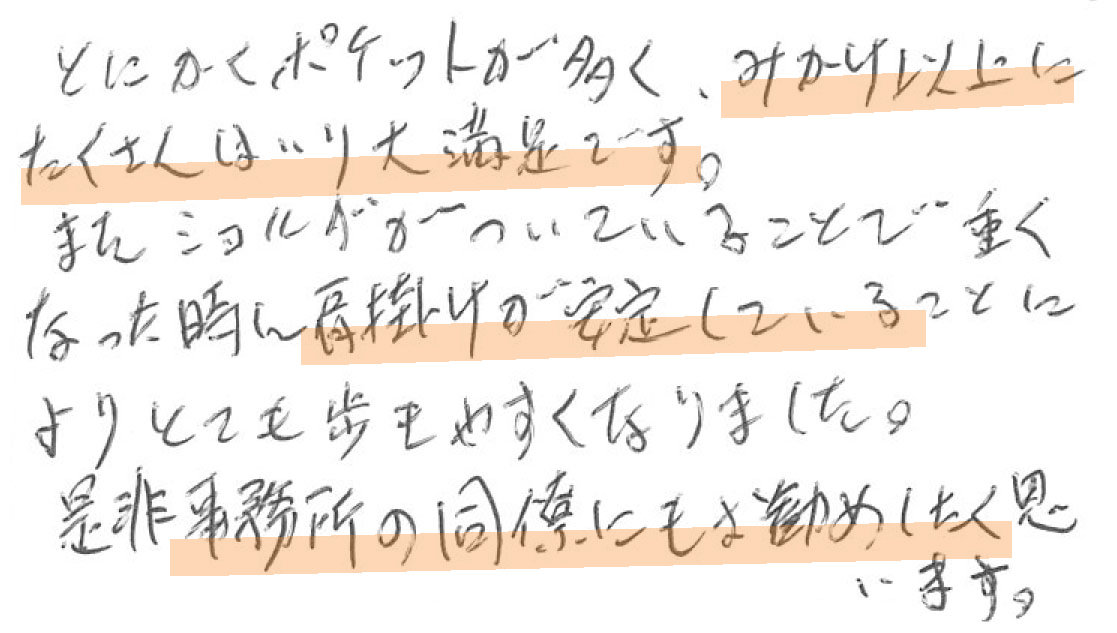 とにかくポケットが多く、みかけ以上に
たくさんはいり大満足です。
またショルダがついていることで重く
なった時に肩掛けが安定していることに
よりとても歩きやすくなりました。
是非事務所の同僚にもお勧めしたく思
います。